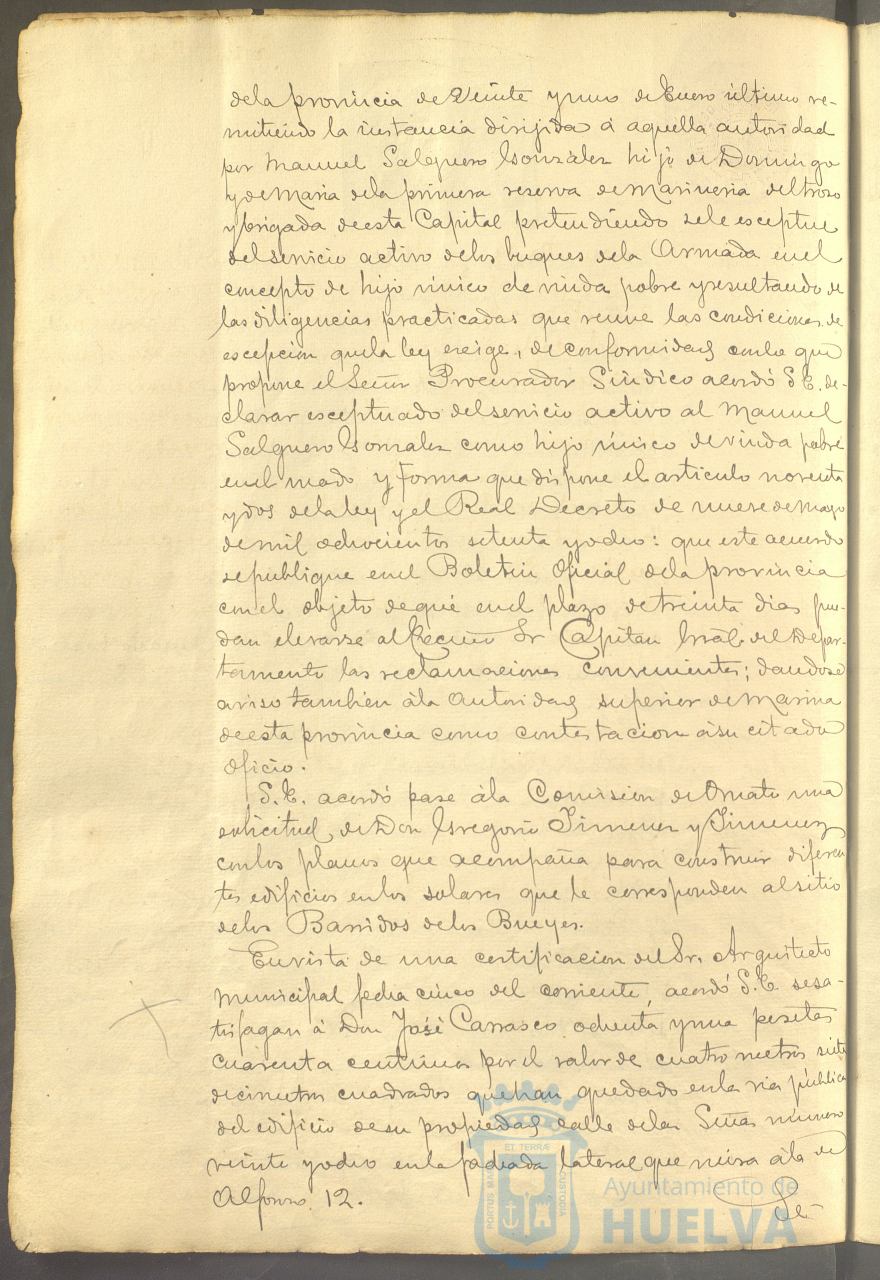 dela provincia de Veinte y uno de Enero último re-
mitiendo la instancia dirijida á aquella autoridad
por Manuel Salguero Gonzalez hijo de Domingo
y de Maria dela primera reserva de marineria deltrozo
y brigada deesta Capital pretendiendo sele esceptue
delservicio activo delos buques dela Armada enel
concepto de hijo único de viuda pobre y resultando de
las diligencias practicadas que reune las condiciones de
escepcion quela ley exige, de conformidad conlo que
propone el Señor Procurador Sindico acordó S.E. de-
clarar esceptuado delservicio activo al Manuel
Salguero Gonzalez como hijo único de viuda pobre
enel modo y forma que dispone el articulo noventa
ydos dela ley y el Real Decreto de nueve de mayo
de mil ochocientos setenta yocho: que este acuerdo
sepublique enel Boletin Oficial dela provincia
conel objeto deque enel plazo detreinta dias pue-
dan elevarse al Excmo Sr Capitan Gral. del Depar-
tamento las reclamaciones convenientes; dandose
aviso tambien ála Autoridad superior de Marina
deesta provincia como contestacion ásu citado
Oficio.
S.E. acordó pase ála Comision de Ornato una
solicitud de Don Gregorio Jimenez y Jimenez
conlos planos que acompaña para construir diferen
tes edificios enlos solares que le corresponden alsitio
delos Barridos delos Bueyes.
Envista de una certificacion del Sr. Arquitecto
Municipal fecha cinco del corriente, acordó S.E. sesa-
tisfagan á Don José Carrasco ochenta yuna pesetas
cuarenta centimos por el valor de cuatro metros siete
decimetros cuadrados quehan quedado enla via pública
del edificio desu propiedad calle delas Señas número
veinte yocho enla fachada lateral que mira ála de
Alfonso 12.
Se-
ET TERRÆ
PORTUS MARIS
CUSTODIA
Ayuntamiento de
HUELVA